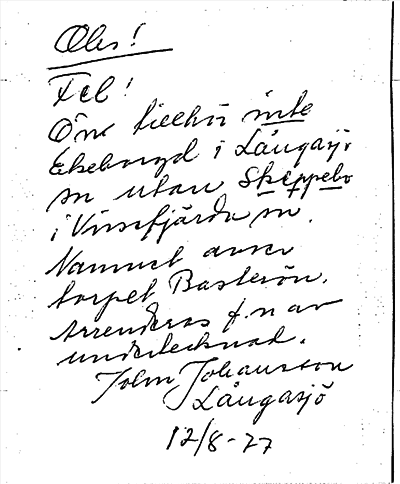 Obs!
Fel!
Ön tillhör inte
Ekeboryd i Långasjö
sn utan Skeppebo
i Vissefjärda sn.
Namnet avser
torpet Basterön.
Arrenderas f.n av
undertecknad.
John Johansson
Långasjö
12/8-77